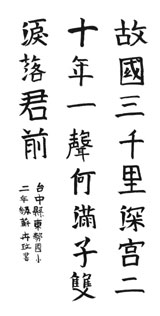 故國三千里深宮二
十年一聲何滿子雙
淚落君前
台中縣東勢國小
二年